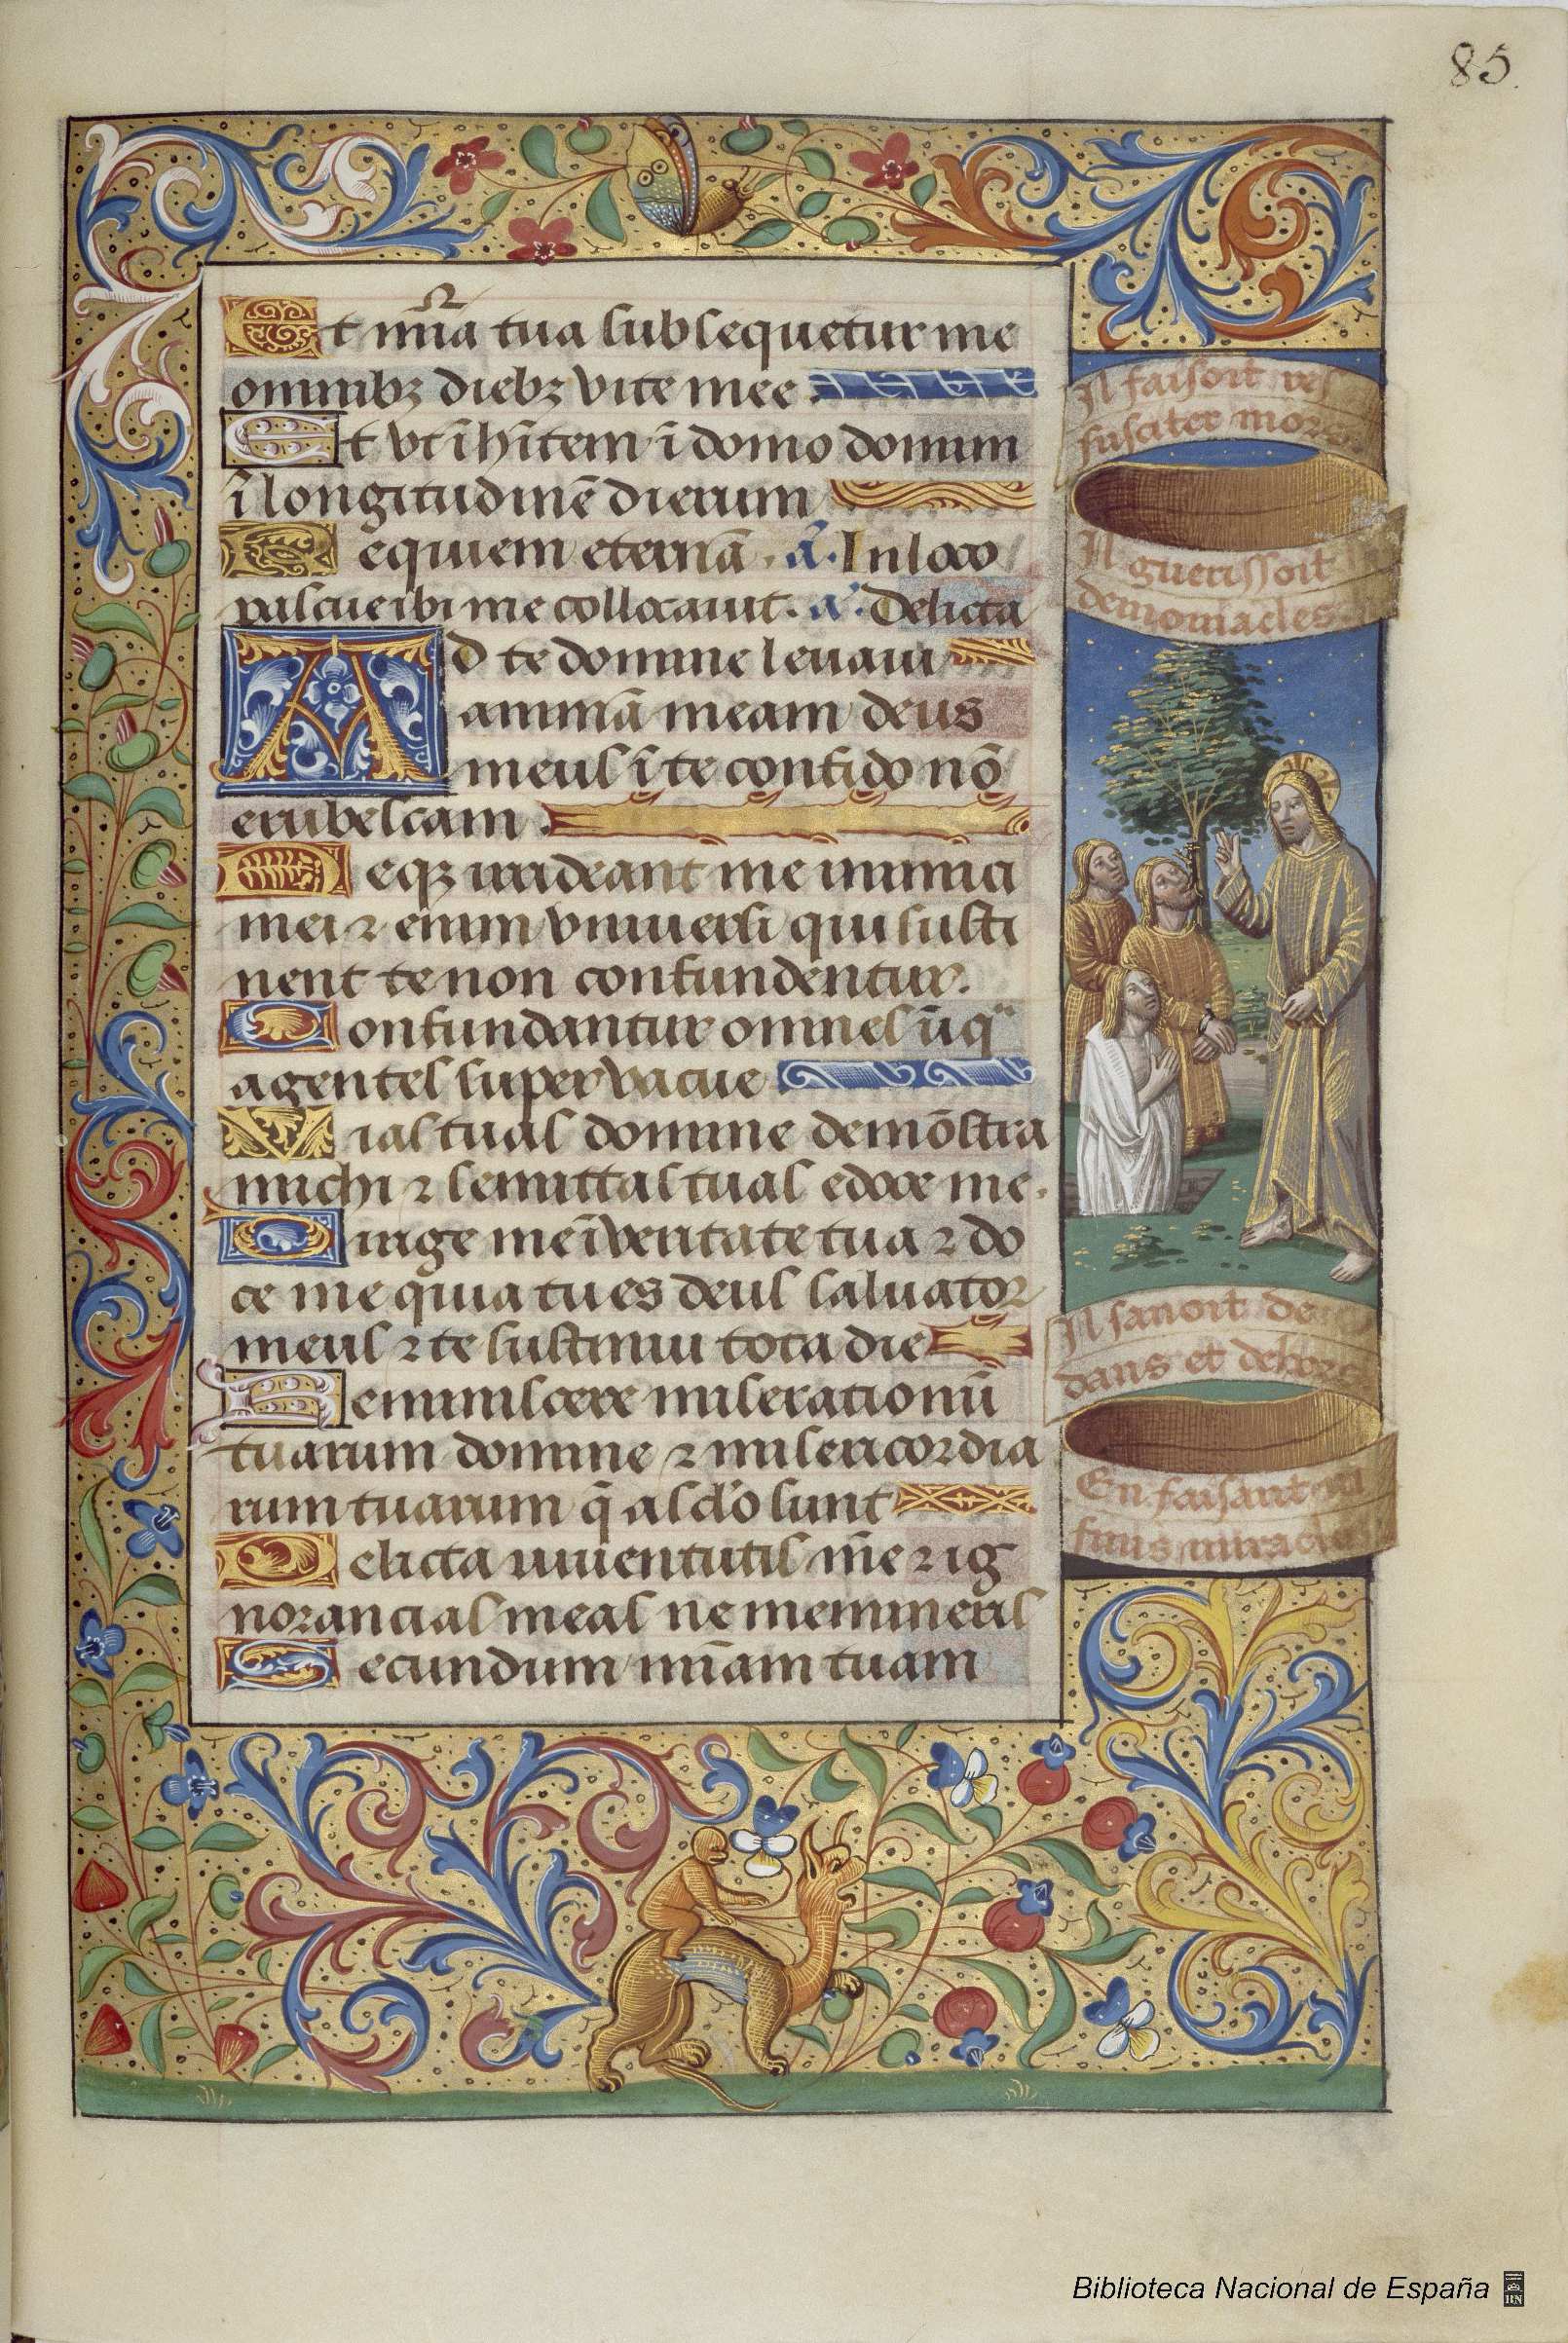 85.
Et mīa tua subsequetur me
omnibꝫ diebꝫ vite mee.
Et vt īhītem ī domo domini
ī longitudinē dierum
Requiem eternā. a. In loco
pascue ibi me collocauit. a. Delicta
Ad te domine leuaui
animā meam deus
meus ī te confido nō
erubescam.
Neqꝫ irrideant me inimici
mei ⁊ enim vniuersi qui susti
nent te non confundentur.
Confundantur omnes īiq
agentes superuacue
Vias tuas domine demōstra
michi ⁊ semittas tuas edoce me.
Dirige me ī veritate tua ⁊ do
ce me quia tu es deus saluator
meus ⁊ te sustinui tota die
Reminiscere miserationū
tuarum domine ⁊ misericordia
rum tuarum q̄ a sclō sunt
Delicta iuuentutis mē ⁊ ig
norancias meas ne memineris
Secundum mīam tuam
Il faisoit res
susciter mors
Il guerissoit
demoniacles
Il sauoit de
dans et dehors
En faisant
Biblioteca Nacional de España